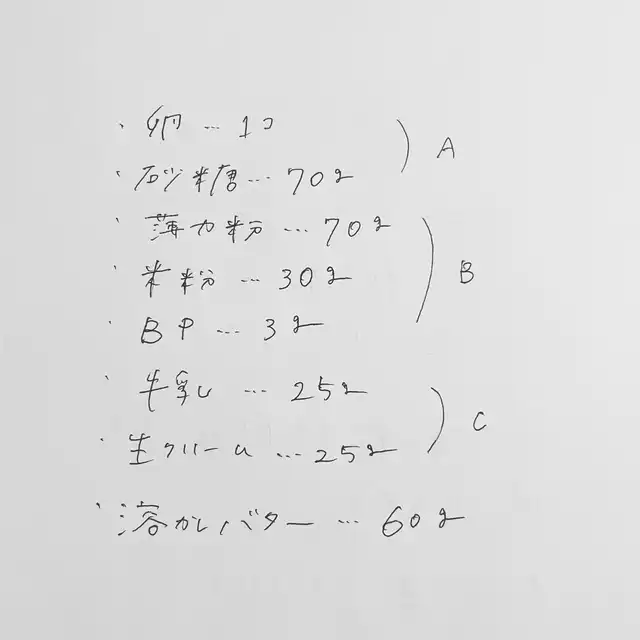 ・卵…1コ
・砂糖…70g
A
・薄力粉…70g
・米粉…30g
・BP…3g
B
・牛乳…25g
・生クリーム…25g
C
・溶かしバター…60g